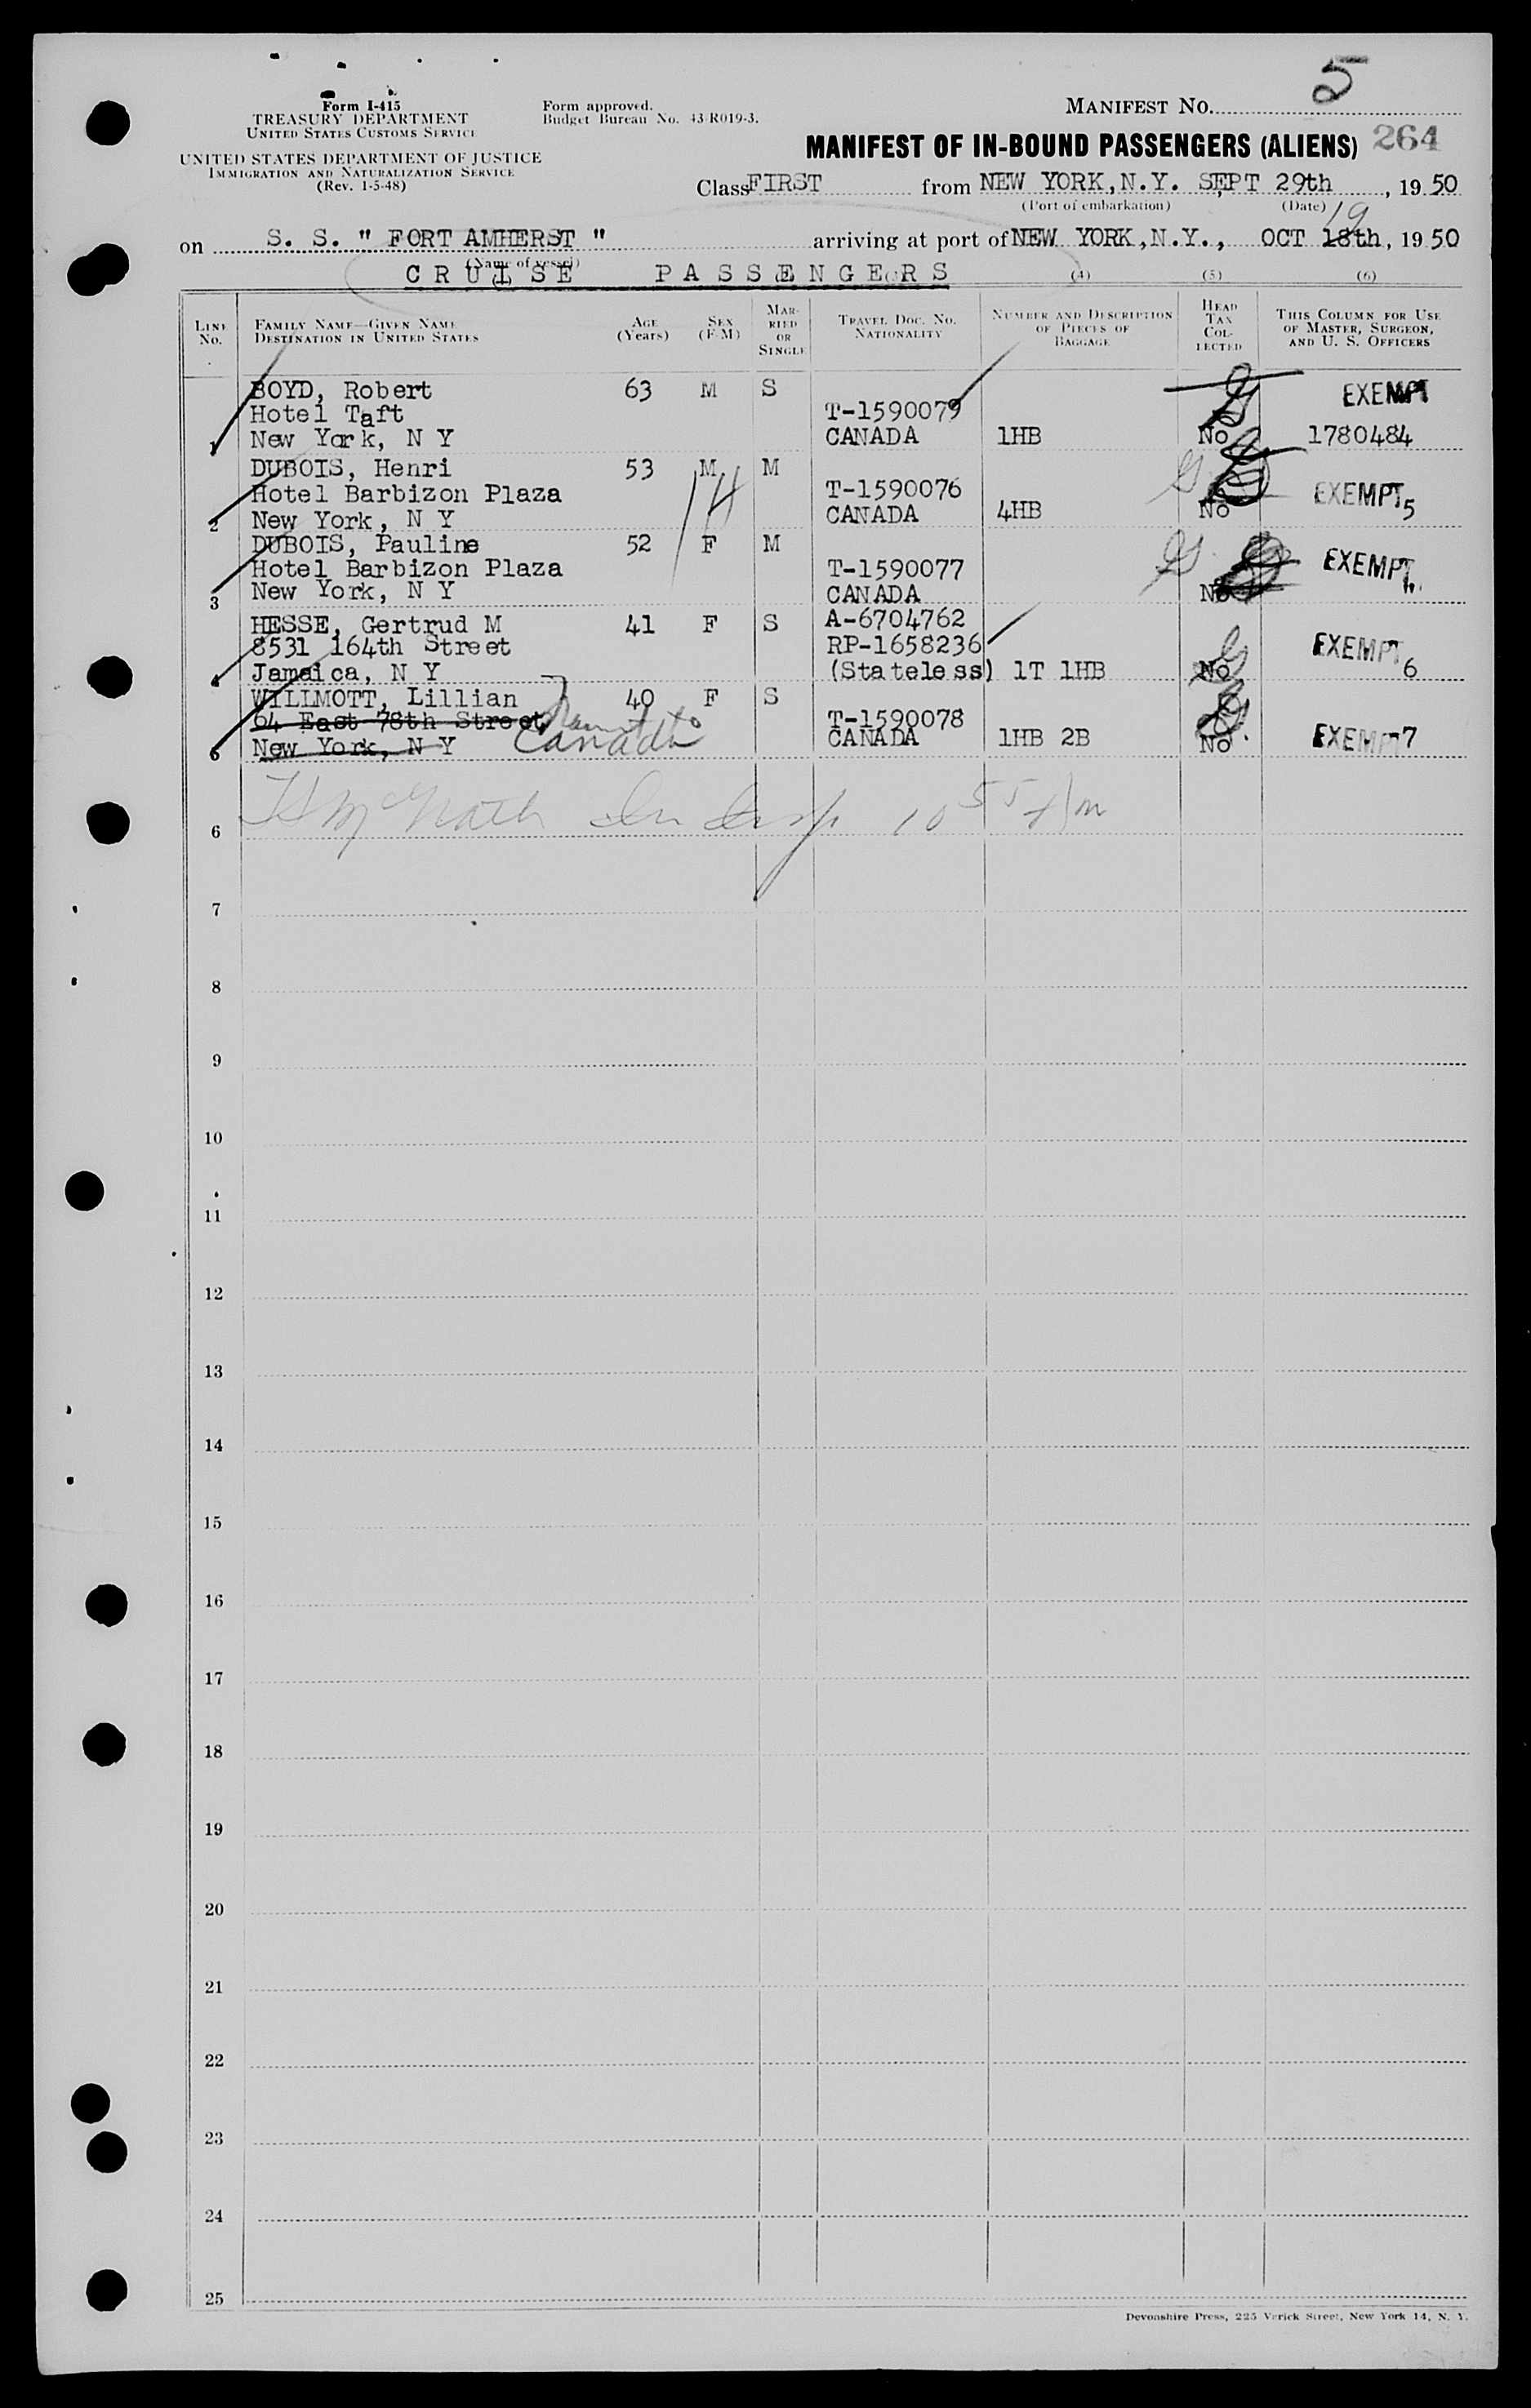 5
Form I-415
TREASURY DEPARTMENT
UNITED STATES CUSTOMS SERVICE
UNITED STATES DEPARTMENT OF JUSTICE
IMMIGRATION AND NATURALIZATION SERVICE
(Rev. 1-5-48)
Form approved.
Budget Bureau No. 43-R019-3.
MANIFEST NO.
MANIFEST OF IN-BOUND PASSENGERS (ALIENS) 264
Class FIRST from NEW YORK, N.Y. SEPT 29th, 19 50
(Port of embarkation) (Date)
19
on S. S. " FORT AMHERST " arriving at port of NEW YORK, N.Y., OCT 18th, 19 50
(Name of vessel)
CRUISE PASSENGERS (4) (5) (6)
LINE No. FAMILY NAME—GIVEN NAME DESTINATION IN UNITED STATES AGE (Years) SEX (F-M) MARRIED OR SINGLE TRAVEL DOC. NO. NATIONALITY NUMBER AND DESCRIPTION OF PIECES OF BAGGAGE HEAD TAX COLLECTED THIS COLUMN FOR USE OF MASTER, SURGEON, AND U. S. OFFICERS
BOYD, Robert 63 M S EXEMPT
Hotel Taft T-1590079
1 New York, N Y CANADA 1HB No 1780484
DUBOIS, Henri 53 M M
Hotel Barbizon Plaza T-1590076 EXEMPT
2 New York, N Y CANADA 4HB No 5
DUBOIS, Pauline 52 F M
Hotel Barbizon Plaza T-1590077 EXEMPT
3 New York, N Y CANADA No
HESSE, Gertrud M 41 F S A-6704762
8531 164th Street RP-1658236 EXEMPT
4 Jamaica, N Y (Stateless) 1T 1HB No 6
WILLMOTT, Lillian 40 F S
64 East 78th Street T-1590078
5 New York, N Y Canada CANADA 1HB 2B No EXEMPT 7
6
7
8
9
10
11
12
13
14
15
16
17
18
19
20
21
22
23
24
25
Devonshire Press, 225 Varick Street, New York 14, N. Y.